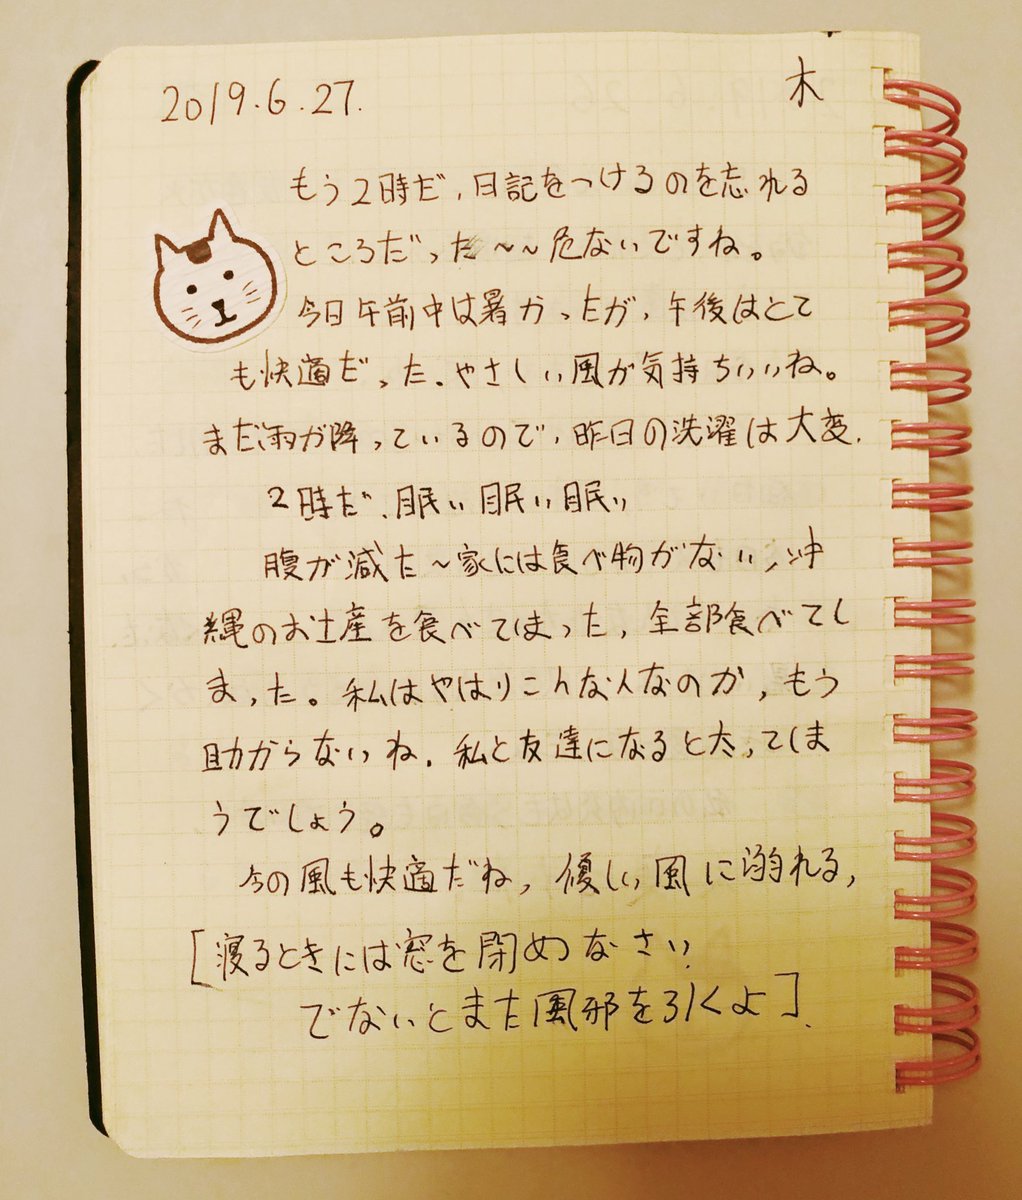 2019.6.27. 木
もう2時だ、日記をつけるのを忘れる
ところだった〜〜危ないですね。
今日午前中は暑かったが、午後はとて
も快適だった、やさしい風が気持ちいいね。
まだ雨が降っているので、昨日の洗濯は大変、
2時だ、眠い眠い眠い
腹が減た〜家には食べ物がない、沖
縄のお土産を食べてしまった、全部食べてし
まった。私はやはりこんな人なのか、もう
助からないね、私と友達になると太ってしま
うでしょう。
今の風も快適だね、優しい風に溺れる、
[寝るときには窓を閉めなさい
でないとまた風邪を引くよ]、